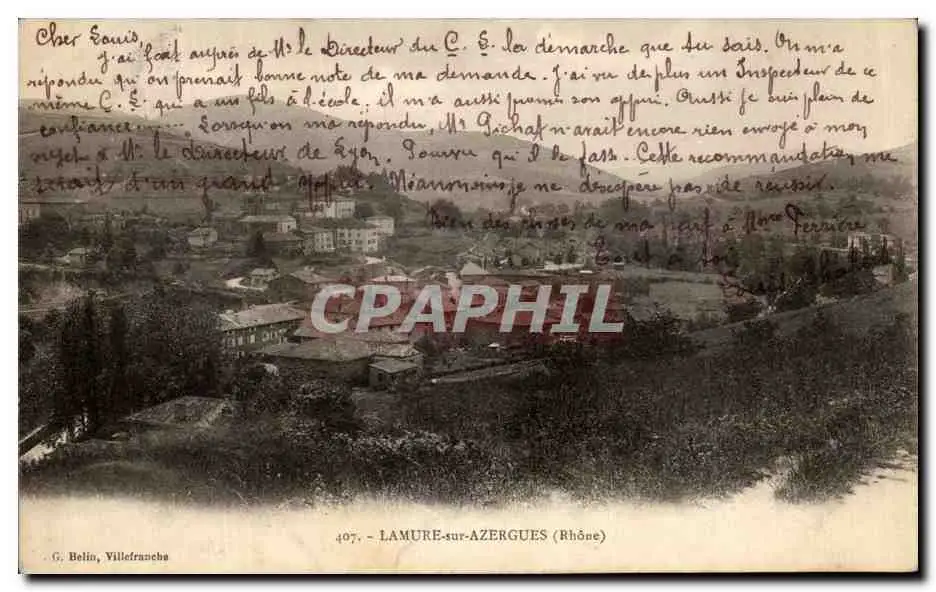 Cher Louis,
J'ai fait auprès de Mr le Directeur du C. S. la démarche que tu sais. On m'a
répondu qu'on prenait bonne note de ma demande. J'ai vu de plus un Inspecteur de ce
même C. S. qui a un fils à l'école. il m'a aussi promis son appui. Aussi je suis plein de
confiance.... Lorsqu'on m'a répondu, Mr Pichat n'avait encore rien envoyé à mon
sujet à Mr le Directeur de Lyon. Pourvu qu'il le fasse. Cette recommandation me
serait d'un grand appui. Néanmoins je ne désespère pas de réussir.
Bien des choses de ma part à Mme Perrière
Tout à toi
CPARHIL
407. - LAMURE-sur-AZERGUES (Rhône)
G. Belin, Villefranche